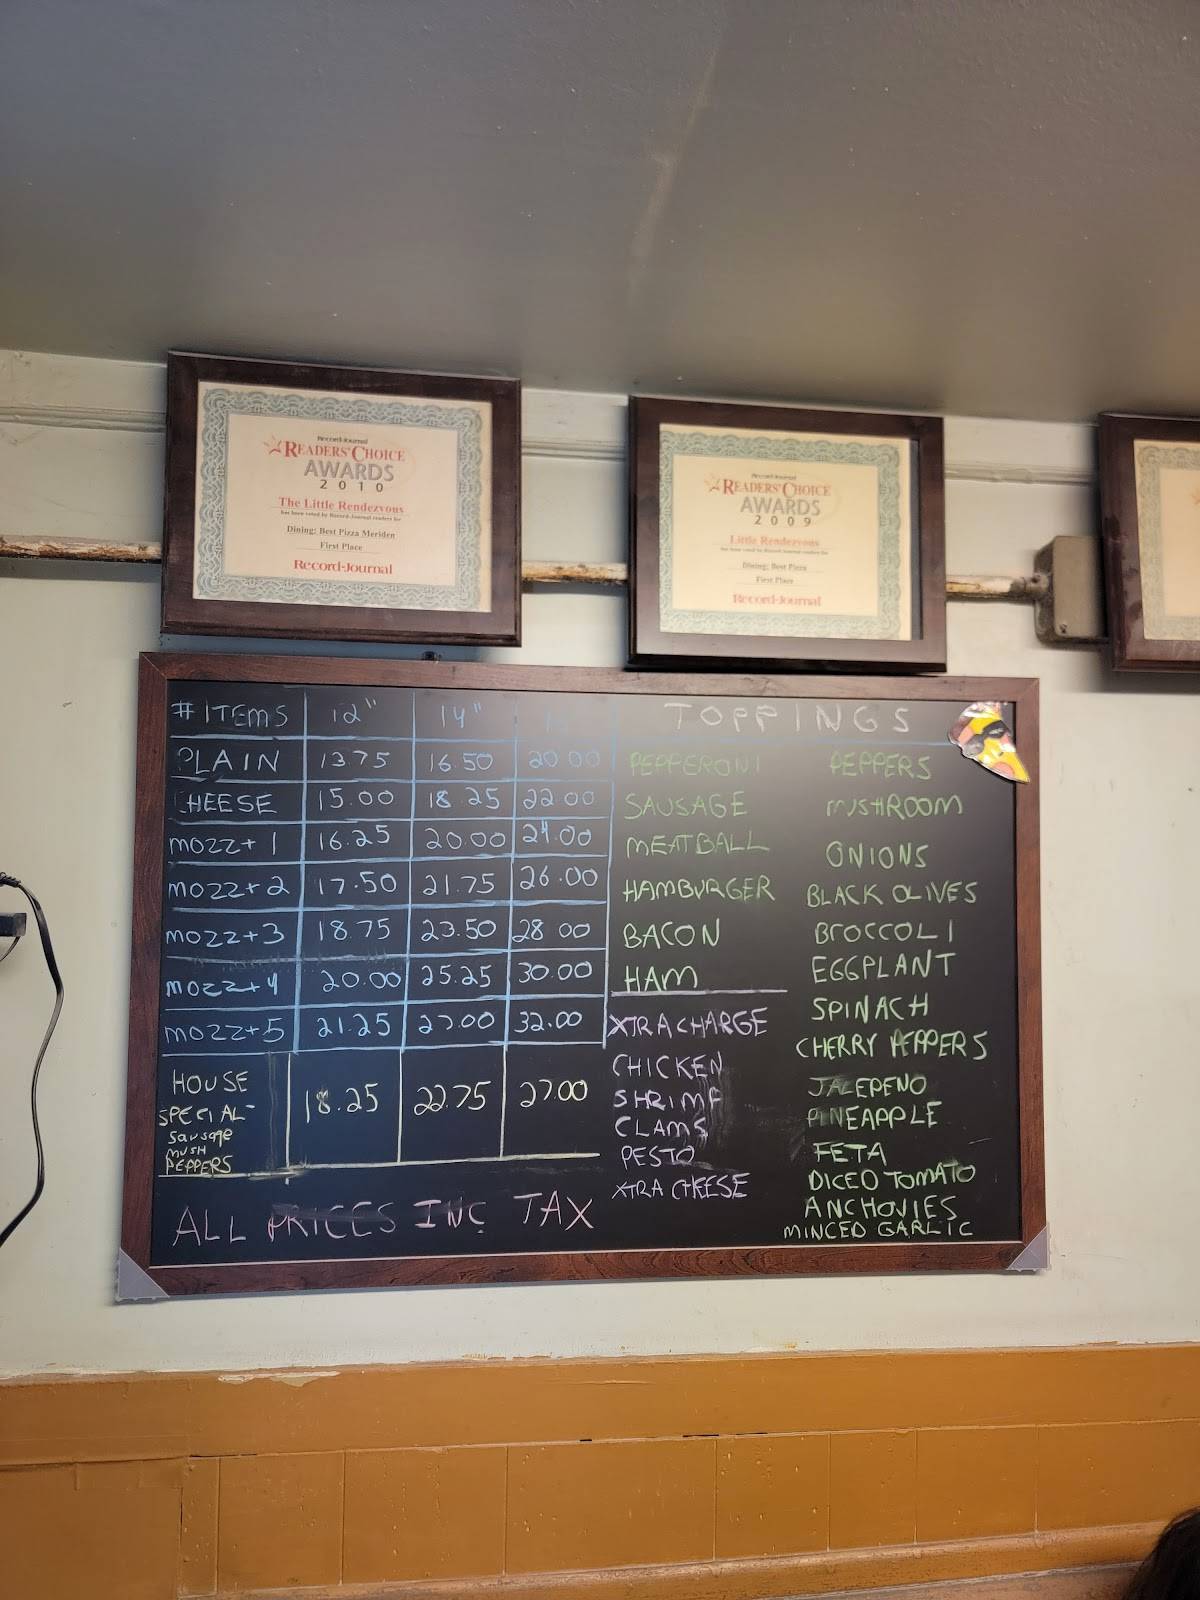 Record-Journal
READERS' CHOICE
AWARDS
2010
The Little Rendezvous
has been voted by Record-Journal readers for
Dining: Best Pizza Meriden
First Place
Record-Journal
Record-Journal
READERS' CHOICE
AWARDS
2009
Little Rendezvous
has been voted by Record-Journal readers for
Dining: Best Pizza
First Place
Record-Journal
# ITEMS 12" 14"
PLAIN 13.75 16.50 20.00
CHEESE 15.00 18.25 22.00
MOZZ+1 16.25 20.00 24.00
MOZZ+2 17.50 21.75 26.00
MOZZ+3 18.75 23.50 28.00
MOZZ+4 20.00 25.25 30.00
MOZZ+5 21.25 27.00 32.00
HOUSE
SPECIAL- 18.25 22.75 27.00
Sausage
MUSH
PEPPERS
ALL PRICES INC TAX
TOPPINGS
PEPPERONI
SAUSAGE
MEATBALL
HAMBURGER
BACON
HAM
XTRA CHARGE
CHICKEN
SHRIMP
CLAMS
PESTO
XTRA CHEESE
PEPPERS
MUSHROOM
ONIONS
BLACK OLIVES
BROCCOLI
EGGPLANT
SPINACH
CHERRY PEPPERS
JALEPENO
PINEAPPLE
FETA
DICED TOMATO
ANCHOVIES
MINCED GARLIC